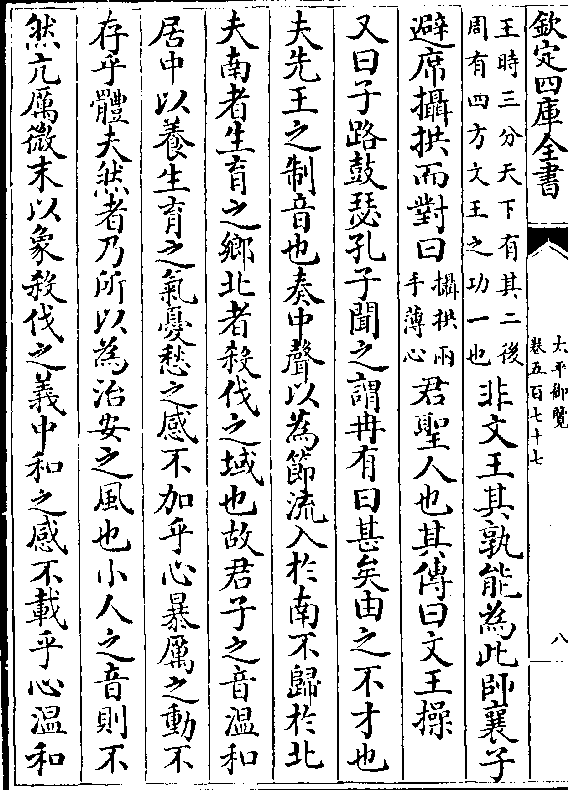 欽定四庫全書
太平御覽
卷五百七十七
八
王時三分天下有其二後
周有四方文王之功一也
非文王其孰能為此師襄子
避席攝拱而對曰
攝拱兩
手薄心
君聖人也其傳曰文王操
又曰子路鼓瑟孔子聞之謂冉有曰甚矣由之不才也
夫先王之制音也奏中聲以為節流入於南不歸於北
夫南者生育之鄉北者殺伐之域也故君子之音溫和
居中以養生育之氣憂愁之感不加乎心暴厲之動不
存乎體夫然者乃所以為治安之風也小人之音則不
然亢厲微末以象殺伐之義中和之感不載乎心溫和